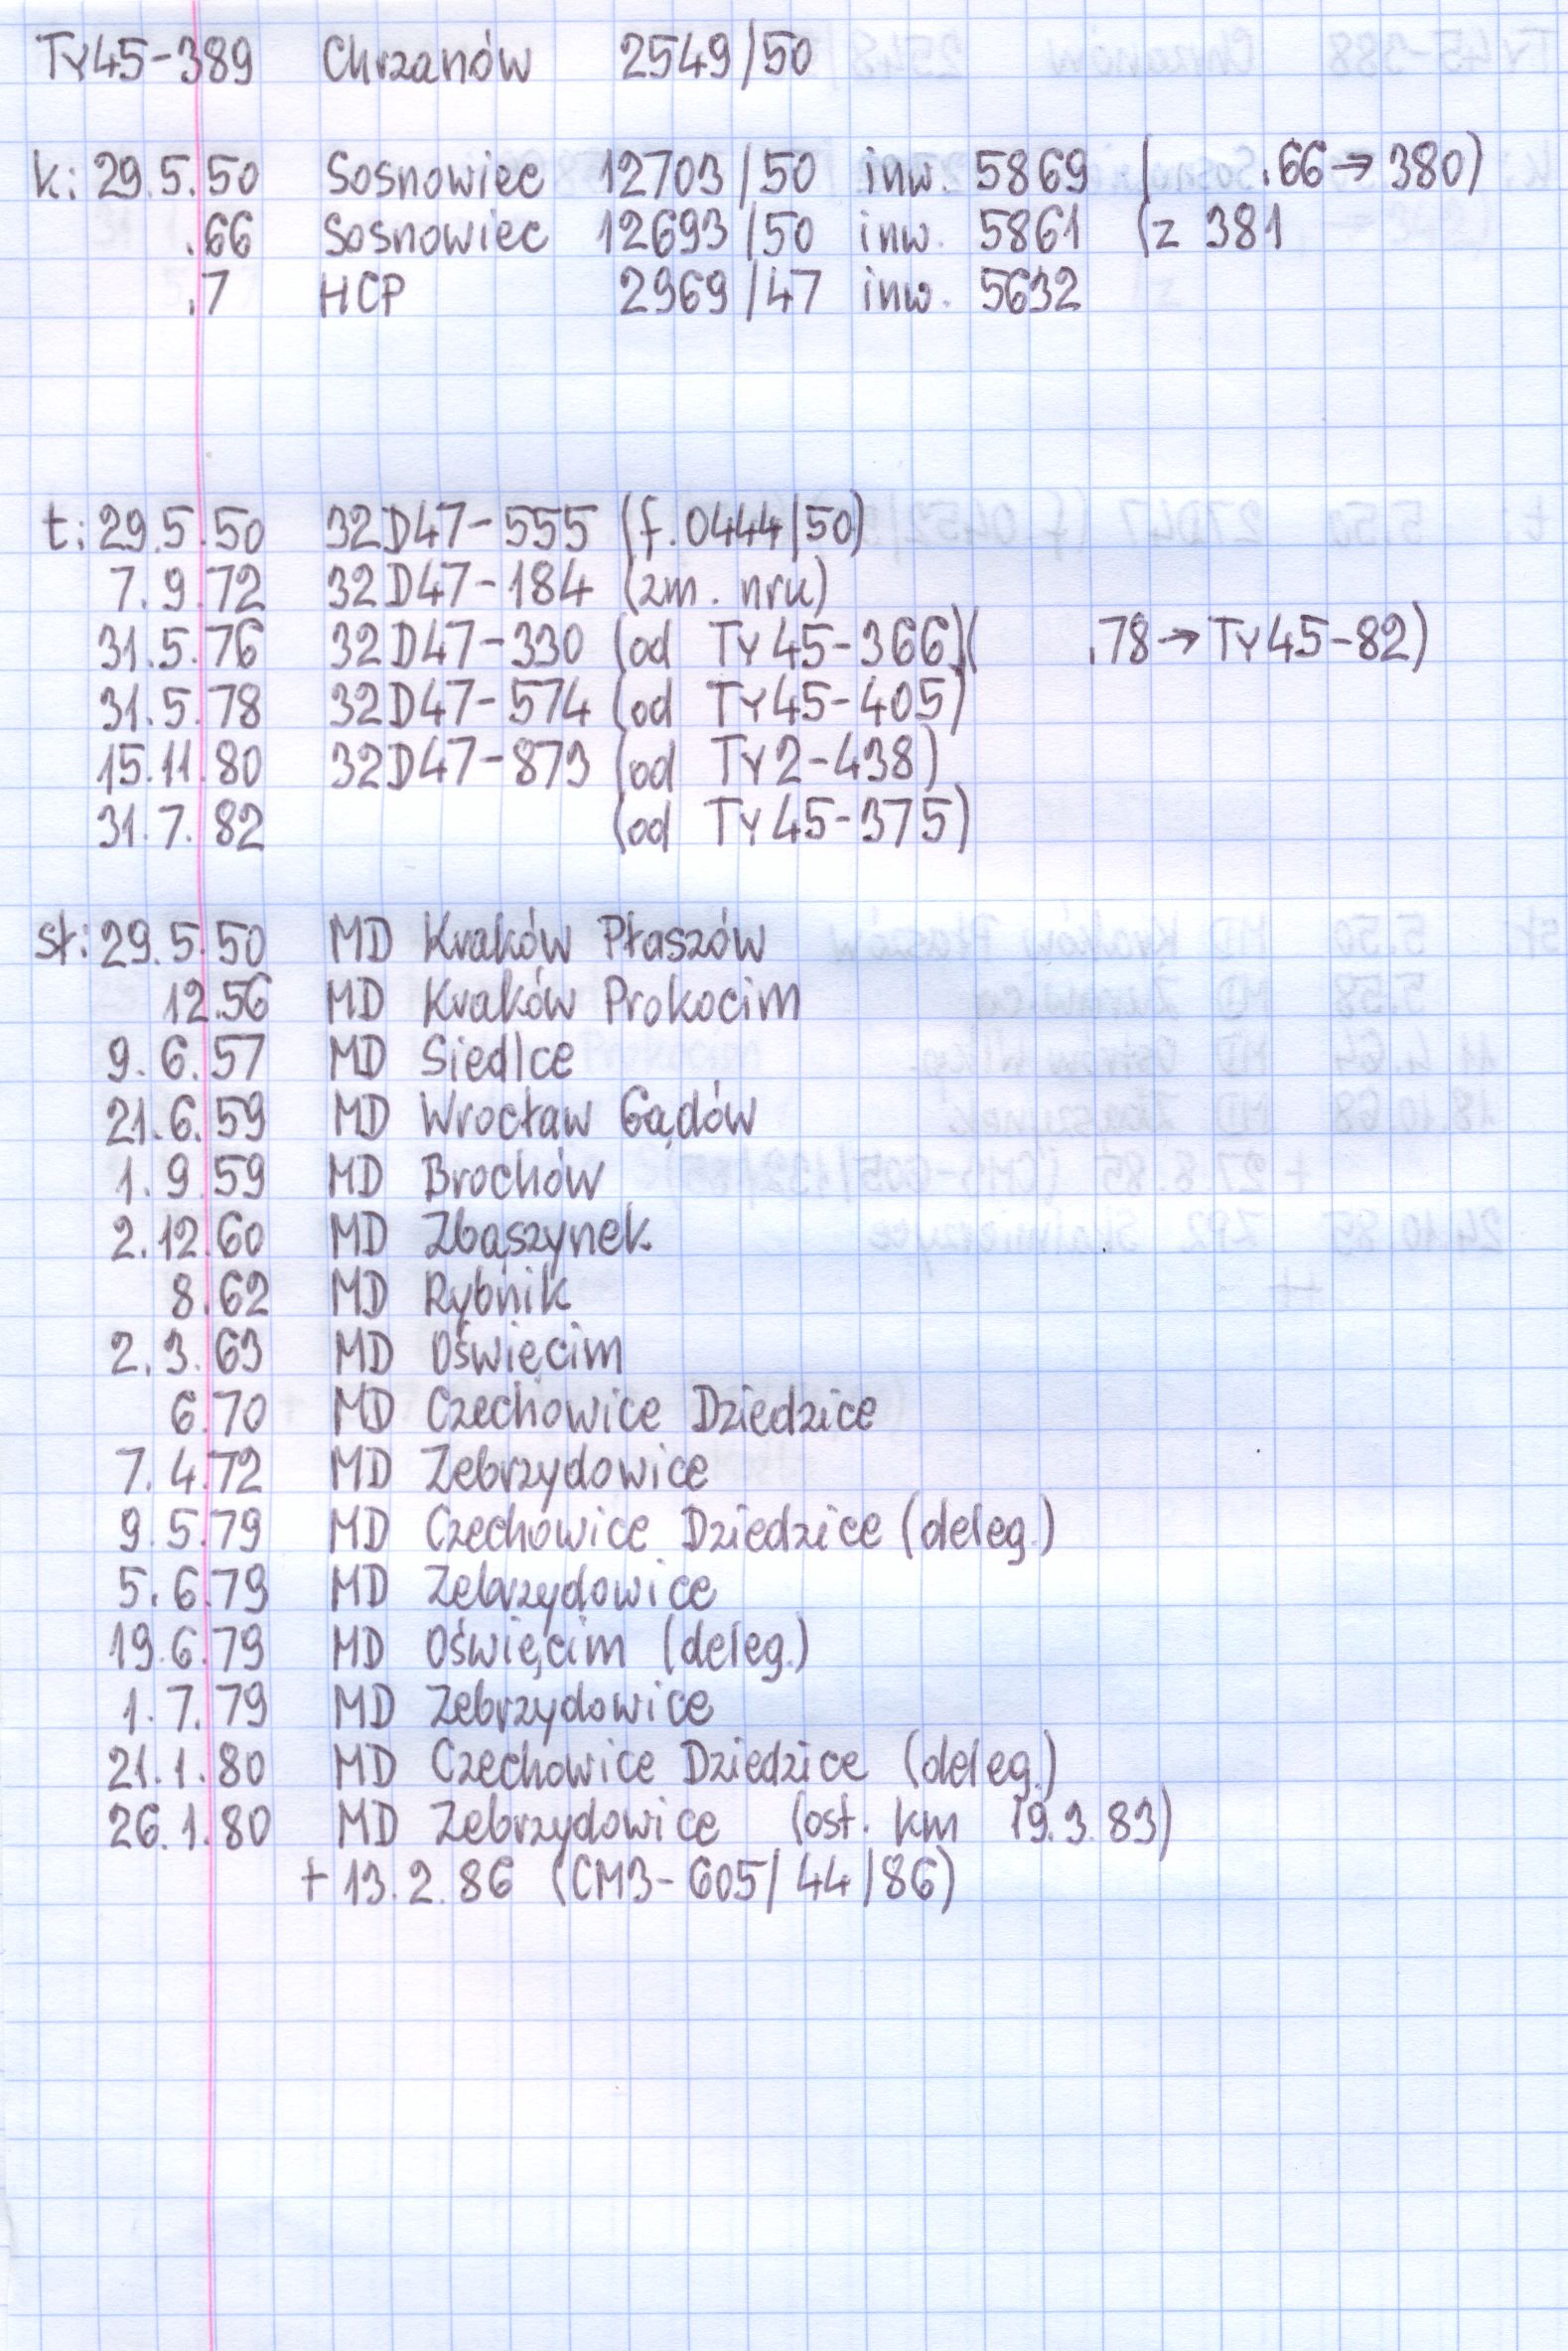 Ty45-389 Chrzanów 2549/50
k: 29.5.50 Sosnowiec 12703/50 inw. 5869 ( .66→380)
.66 Sosnowiec 12693/50 inw. 5861 (z 381
.7 HCP 2969/47 inw. 5632
t: 29.5.50 32D47-555 (f.0444/50)
7.9.72 32D47-184 (zm. nru)
31.5.76 32D47-330 (od Ty45-366)( .78→Ty45-82)
31.5.78 32D47-574 (od Ty45-405)
15.11.80 32D47-873 (od Ty2-438)
31.7.82 (od Ty45-375)
st: 29.5.50 MD Kraków Płaszów
12.56 MD Kraków Prokocim
9.6.57 MD Siedlce
21.6.59 MD Wrocław Gądów
1.9.59 MD Brochów
2.12.60 MD Zbąszynek
8.62 MD Rybnik
2.3.63 MD Oświęcim
6.70 MD Czechowice Dziedzice
7.4.72 MD Zebrzydowice
9.5.79 MD Czechowice Dziedzice (deleg.)
5.6.79 MD Zebrzydowice
19.6.79 MD Oświęcim (deleg.)
1.7.79 MD Zebrzydowice
21.1.80 MD Czechowice Dziedzice (deleg.)
26.1.80 MD Zebrzydowice (ost. km 19.3.83)
+ 13.2.86 (CM3-605/44/86)